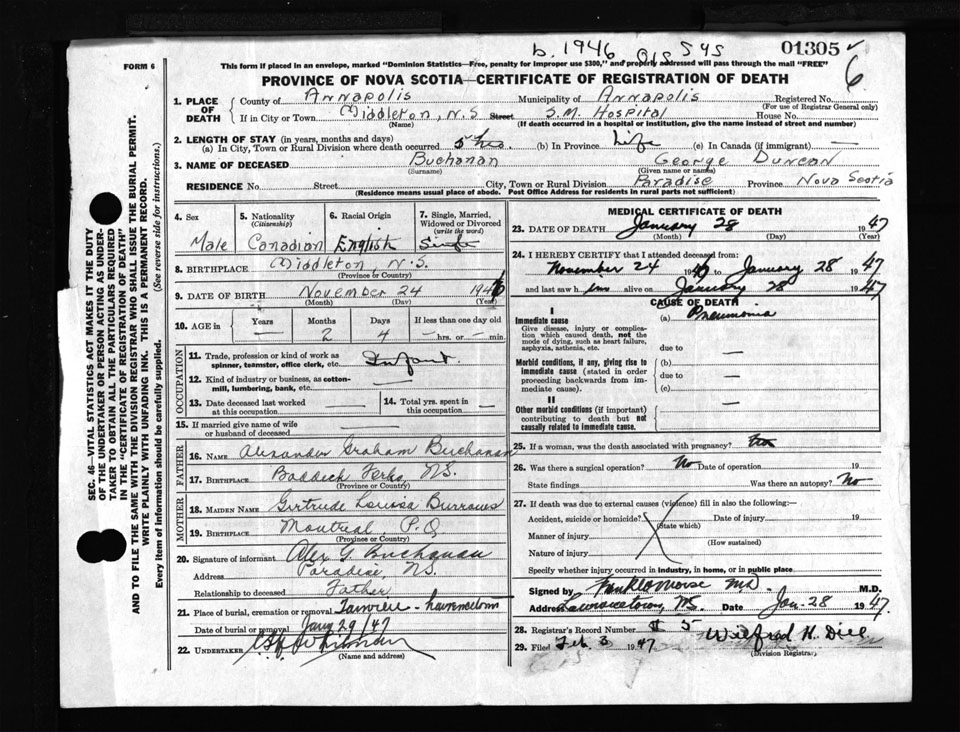 b. 1946 915 545 01305
6
FORM 6
This form if placed in an envelope, marked "Dominion Statistics—Free, penalty for improper use $300," and properly addressed will pass through the mail "FREE"
PROVINCE OF NOVA SCOTIA—CERTIFICATE OF REGISTRATION OF DEATH
1. PLACE OF DEATH County of Annapolis Municipality of Annapolis Registered No.
(For use of Registrar General only)
If in City or Town Middleton, N.S Street S.M. Hospital House No.
(Name) (If death occurred in a hospital or institution, give the name instead of street and number)
2. LENGTH OF STAY (in years, months and days)
(a) In City, Town or Rural Division where death occurred 5 hrs. (b) In Province Life (c) In Canada (if immigrant) —
3. NAME OF DECEASED Buchanan George Duncan
(Surname) (Given name or names)
RESIDENCE No. Street City, Town or Rural Division Paradise Province Nova Scotia
(Residence means usual place of abode. Post Office Address for residents in rural parts not sufficient)
4. Sex 5. Nationality (Citizenship) 6. Racial Origin 7. Single, Married, Widowed or Divorced (write the word)
Male Canadian English Single
8. BIRTHPLACE Middleton, N.S.
(Province or Country)
9. DATE OF BIRTH November 24 1946
(Month) (Day) (Year)
10. AGE in Years Months Days If less than one day old
— 2 4 — hrs. or — min.
OCCUPATION
11. Trade, profession or kind of work as spinner, teamster, office clerk, etc. Infant.
12. Kind of industry or business, as cotton-mill, lumbering, bank, etc. —
13. Date deceased last worked at this occupation — 14. Total yrs. spent in this occupation —
15. If married give name of wife or husband of deceased —
FATHER
16. NAME Alexander Graham Buchanan
17. BIRTHPLACE Baddeck Forks, N.S.
(Province or Country)
MOTHER
18. MAIDEN NAME Gertrude Louisa Burrows
19. BIRTHPLACE Montreal, P.Q
(Province or Country)
20. Signature of informant Alex G. Buchanan
Address Paradise, N.S.
Relationship to deceased Father
21. Place of burial, cremation or removal
Date of burial or removal Jany 29/47
22. UNDERTAKER
(Name and address)
MEDICAL CERTIFICATE OF DEATH
23. DATE OF DEATH January 28 1947
(Month) (Day) (Year)
24. I HEREBY CERTIFY that I attended deceased from:
November 24 1946 to January 28 1947
and last saw him alive on January 28 1947
CAUSE OF DEATH
I
Immediate cause (a) Pneumonia
Give disease, injury or complication which caused death, not the mode of dying, such as heart failure, asphyxia, asthenia, etc.
due to —
Morbid conditions, if any, giving rise to immediate cause (stated in order proceeding backwards from immediate cause).
(b)
due to —
(c)
II
Other morbid conditions (if important) contributing to death but not causally related to immediate cause. —
25. If a woman, was the death associated with pregnancy?
26. Was there a surgical operation? No Date of operation 19
State findings Was there an autopsy? No
27. If death was due to external causes (violence) fill in also the following:—
Accident, suicide or homicide? (State which) Date of injury 19
Manner of injury (How sustained)
Nature of injury
Specify whether injury occurred in industry, in home, or in public place
Signed by Frank Morse MD M.D.
Address Lawrencetown, NS. Date Jan. 28 1947.
28. Registrar's Record Number # 5 Wilfred H. Dill
29. Filed Feb. 3 1947 (Division Registrar)
SEC. 46—VITAL STATISTICS ACT MAKES IT THE DUTY
OF THE UNDERTAKER OR PERSON ACTING AS UNDER-
TAKER TO OBTAIN ALL THE PARTICULARS REQUIRED
IN THE "CERTIFICATE OF REGISTRATION OF DEATH"
AND TO FILE THE SAME WITH THE DIVISION REGISTRAR WHO SHALL ISSUE THE BURIAL PERMIT.
WRITE PLAINLY WITH UNFADING INK. THIS IS A PERMANENT RECORD.
Every item of information should be carefully supplied. (See reverse side for instructions.)